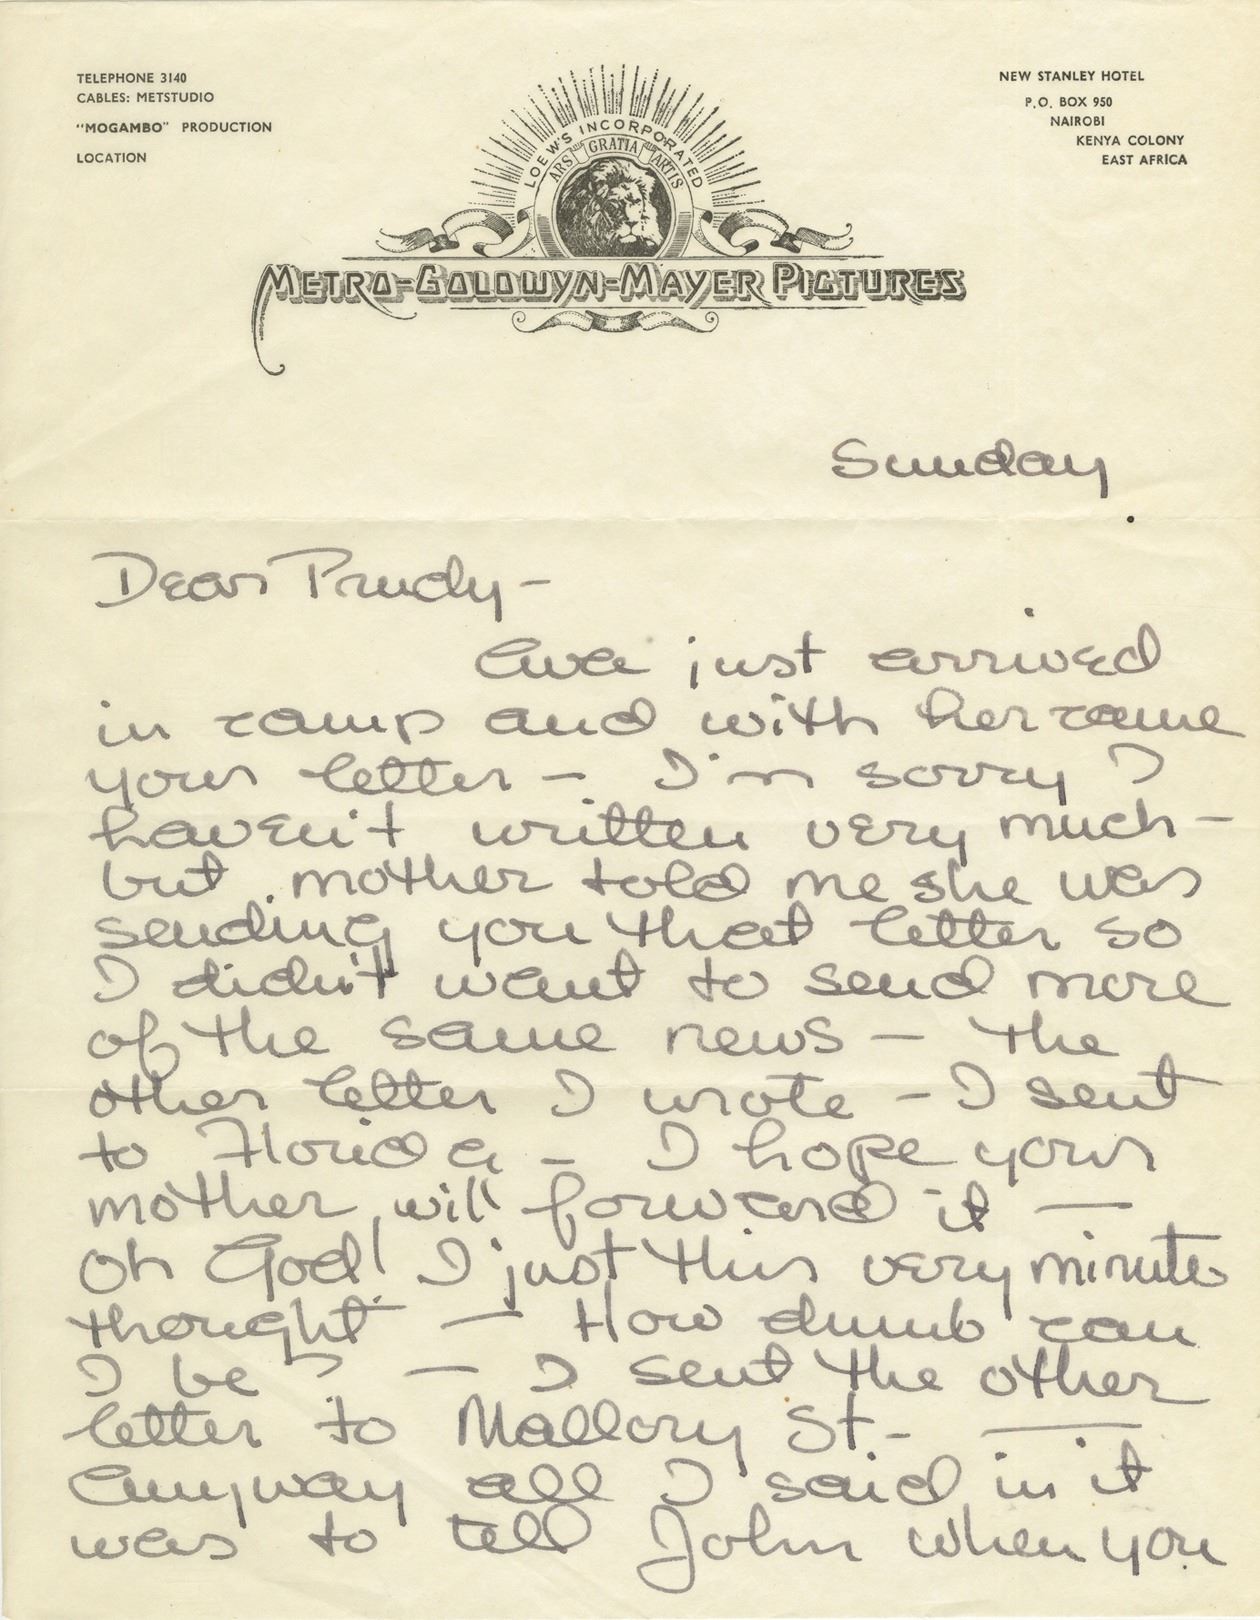 TELEPHONE 3140
CABLES: METSTUDIO
"MOGAMBO" PRODUCTION
LOCATION
NEW STANLEY HOTEL
P.O. BOX 950
NAIROBI
KENYA COLONY
EAST AFRICA
LOEW'S INCORPORATED
ARS GRATIA ARTIS
METRO-GOLDWYN-MAYER PICTURES
Sunday
Dear Prudy -
Ava just arrived
in camp and with her came
your letter - I'm sorry I
haven't written very much -
but mother told me she was
sending you that letter so
I didn't want to send more
of the same news - the
other letter I wrote - I sent
to Florida - I hope your
mother will forward it —
Oh God! I just this very minute
thought — How dumb can
I be? — I sent the other
letter to Mallory St. - —
Anyway all I said in it
was to tell John when you